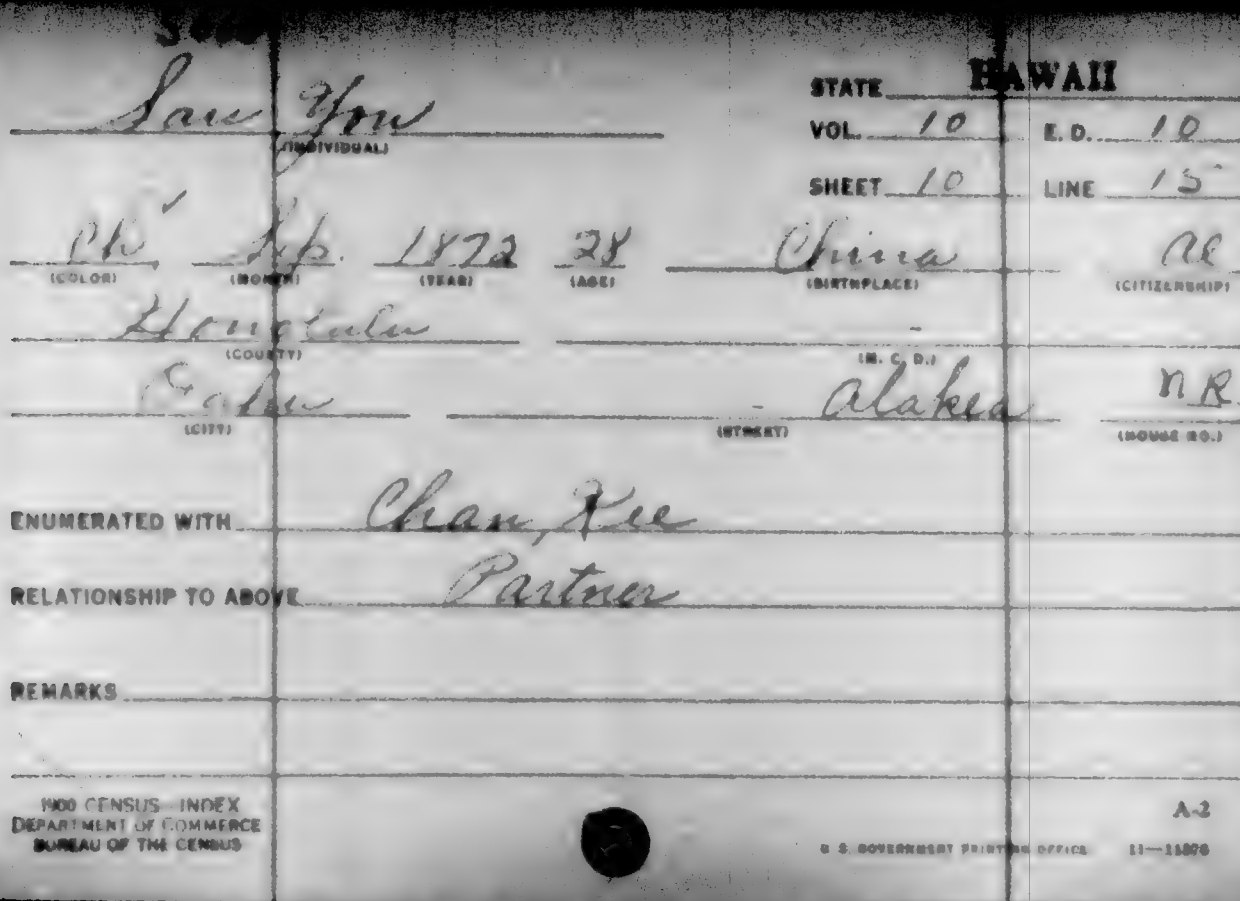 Sau You
(INDIVIDUAL)
STATE HAWAII
VOL. 10 E. D. 10
SHEET 10 LINE 15
Ch Sep. 1872 28 China al
(COLOR) (MONTH) (YEAR) (AGE) (BIRTHPLACE) (CITIZENSHIP)
Honolulu -
(COUNTY) (M. C. D.)
Oahu - Alakea n R.
(CITY) (STREET) (HOUSE NO.)
ENUMERATED WITH Chan, Kee
RELATIONSHIP TO ABOVE Partner
REMARKS
1900 CENSUS - INDEX
DEPARTMENT OF COMMERCE
BUREAU OF THE CENSUS
A-2
U. S. GOVERNMENT PRINTING OFFICE 11—11876